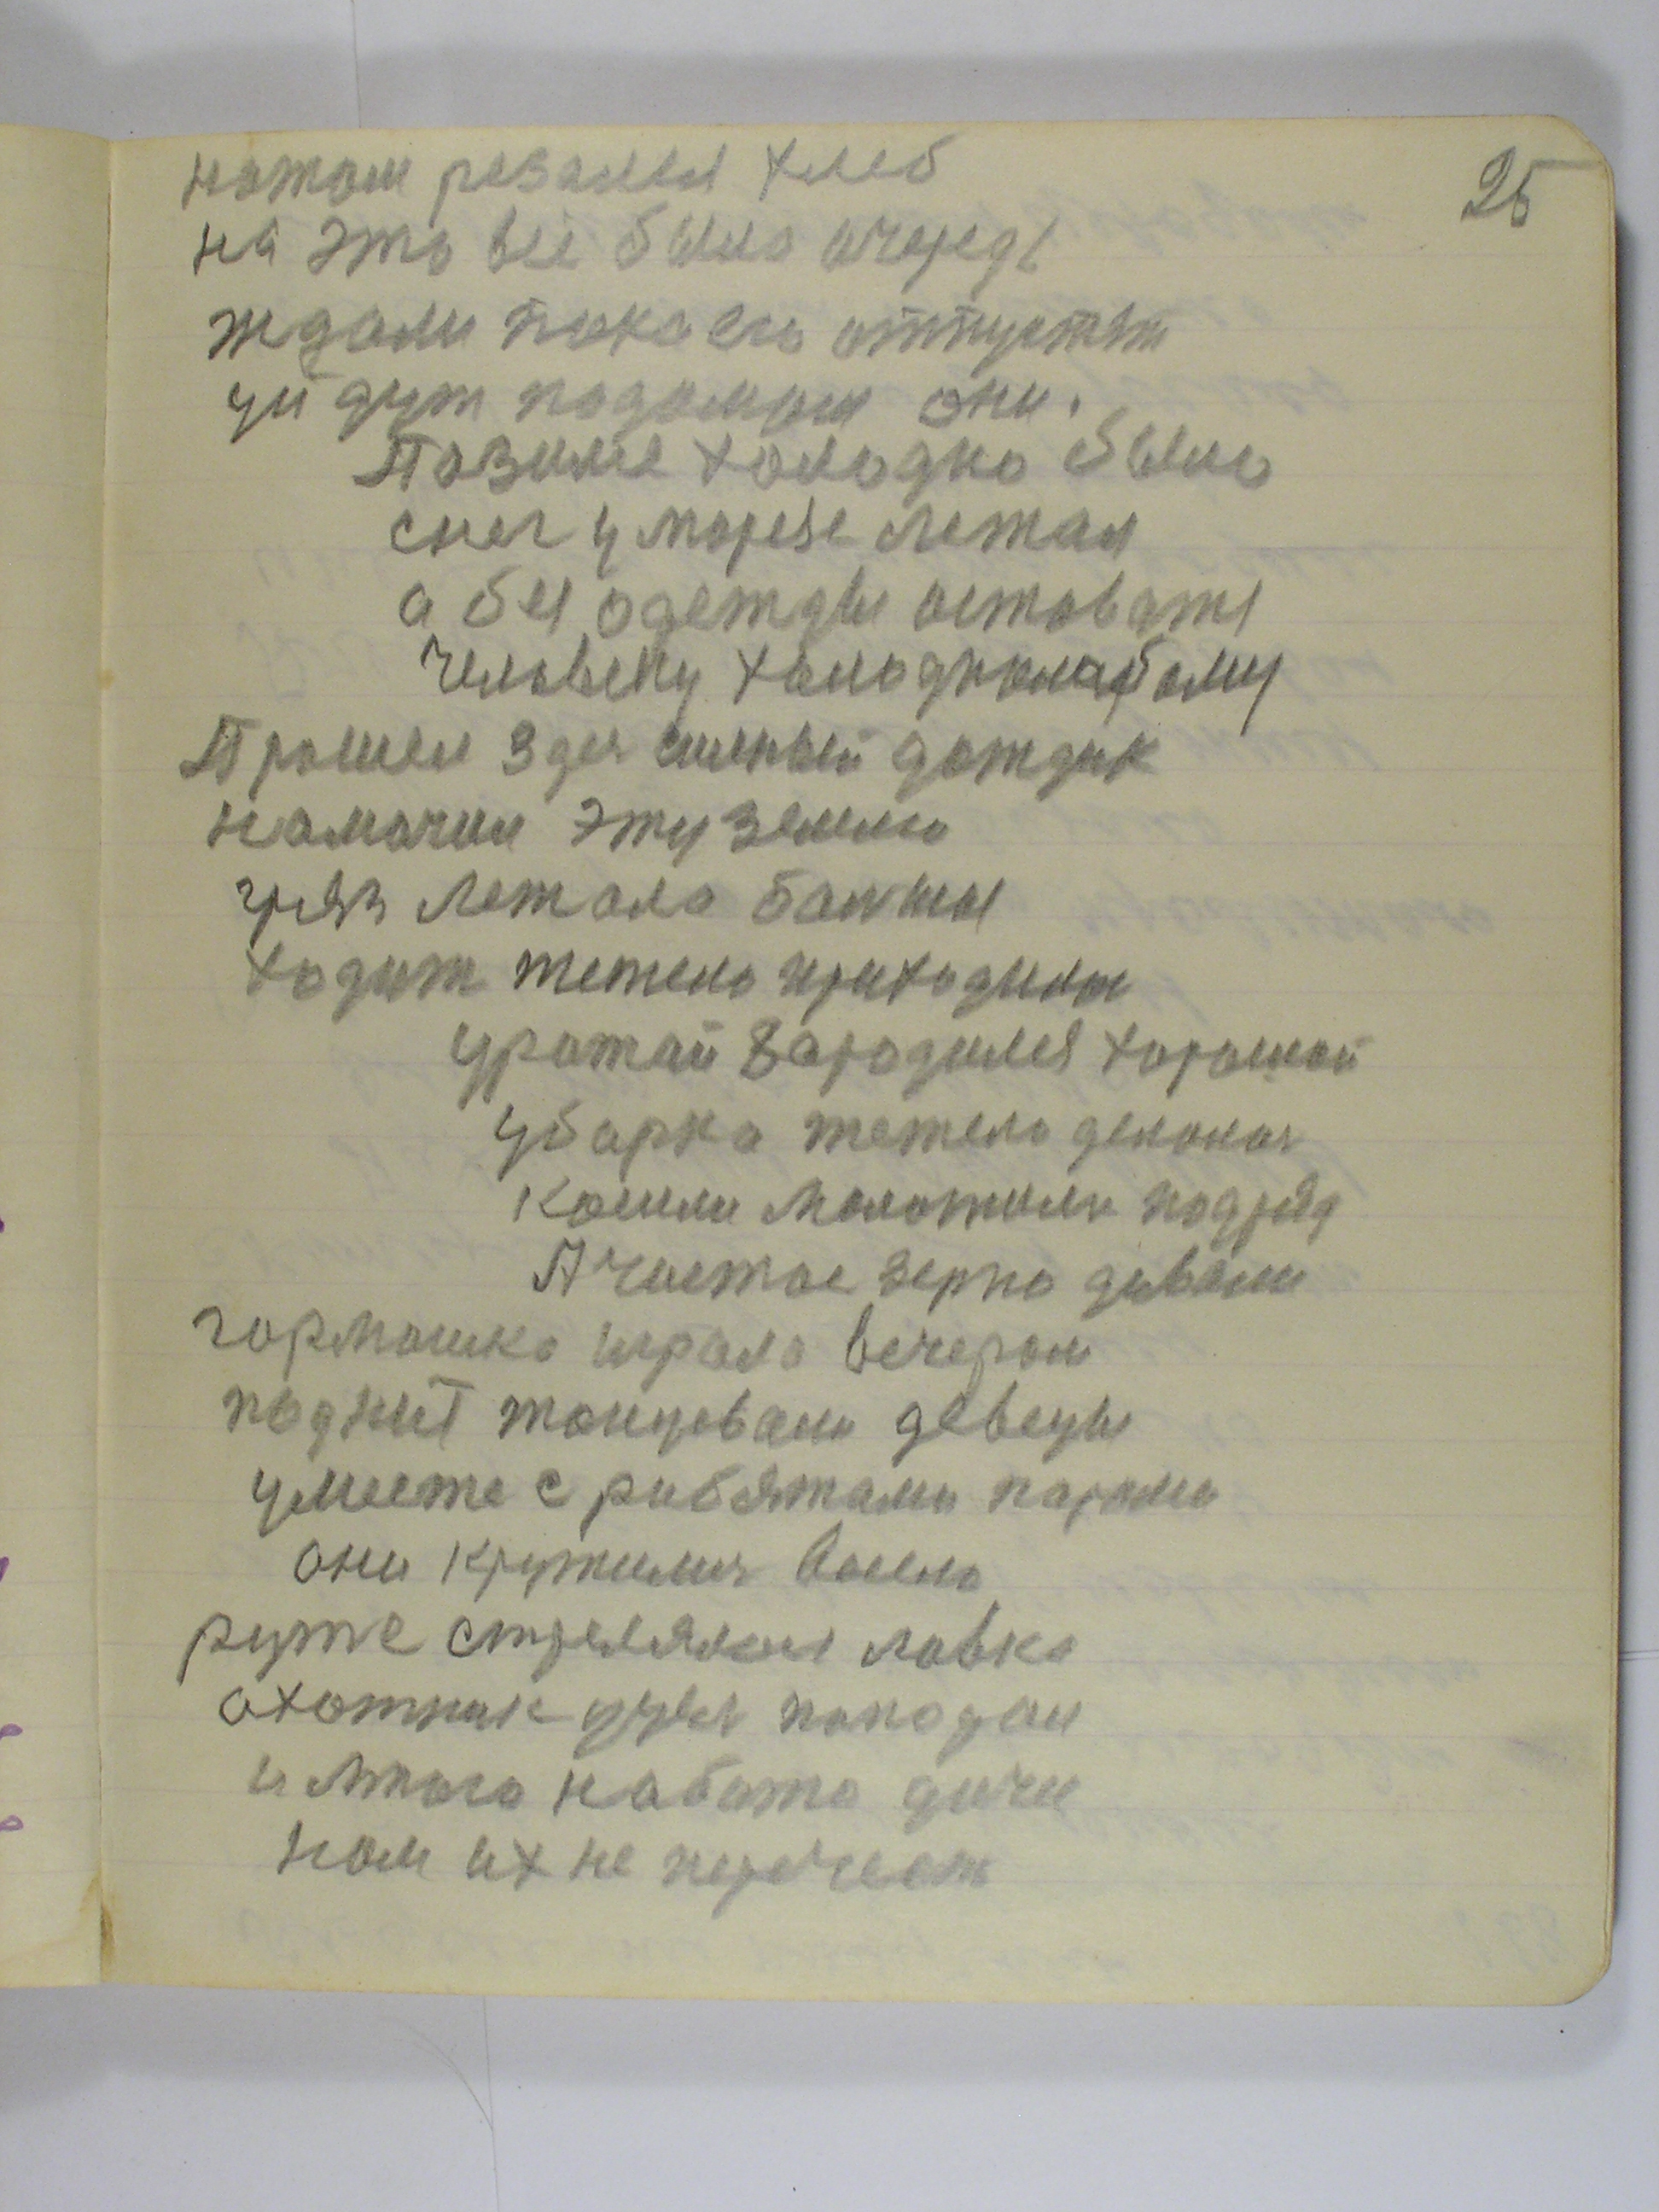 25
ножом резался хлеб
на это всё было очередь
ждали пока его отпустят
уйдут подомам они.
Позиме холодно было
снег у морезе лежал
а бес одежды оставатся
человеку холоднослабому
Прошел здеся сильный дождик
намочил эту землю
грязь лежала большая
ходит тежело приходилос
урожай зародился хорошой
уборка тежело делолас
косили молотили подряд
А чистое зерно давали
гормошка играла вечером
под ние танцовали девецы
уместе с рибятами парами
они кружилис весело
руже стрелялося ловко
охотник попадал
и много набито дичи
нам их не перечесть